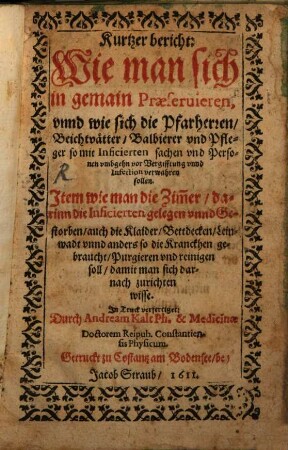 Kurtzer bericht:
Wie man sich
in gemain Præseruieren,
vnnd wie sich die Pfarherren/
Beichtvätter/ Balbierer vnd Pfle-
ger so mit Inficierten sachen vnd Perso-
nen vmbgehn vor Vergifftung vnnd
Infection verwahren
sollen.
Item wie man die Zim̃er/ da-
rinn die Inficierten gelegen vnnd Ge-
storben/ auch die Klaider/ Bettdecken/ Lein-
wadt vnnd anders so die Kranckhen ge-
braucht/ Purgieren vnd reinigen
soll/ damit man sich dar-
nach zurichten
wisse.
In Truck verfertiget/
Durch Andream Kalt Ph. & Medicinæ
Doctorem Reipub. Constantien-
sis Physicum.
Getruckt zu Costantz am Bodensee/ bey
Jacob Straub/ 1611.